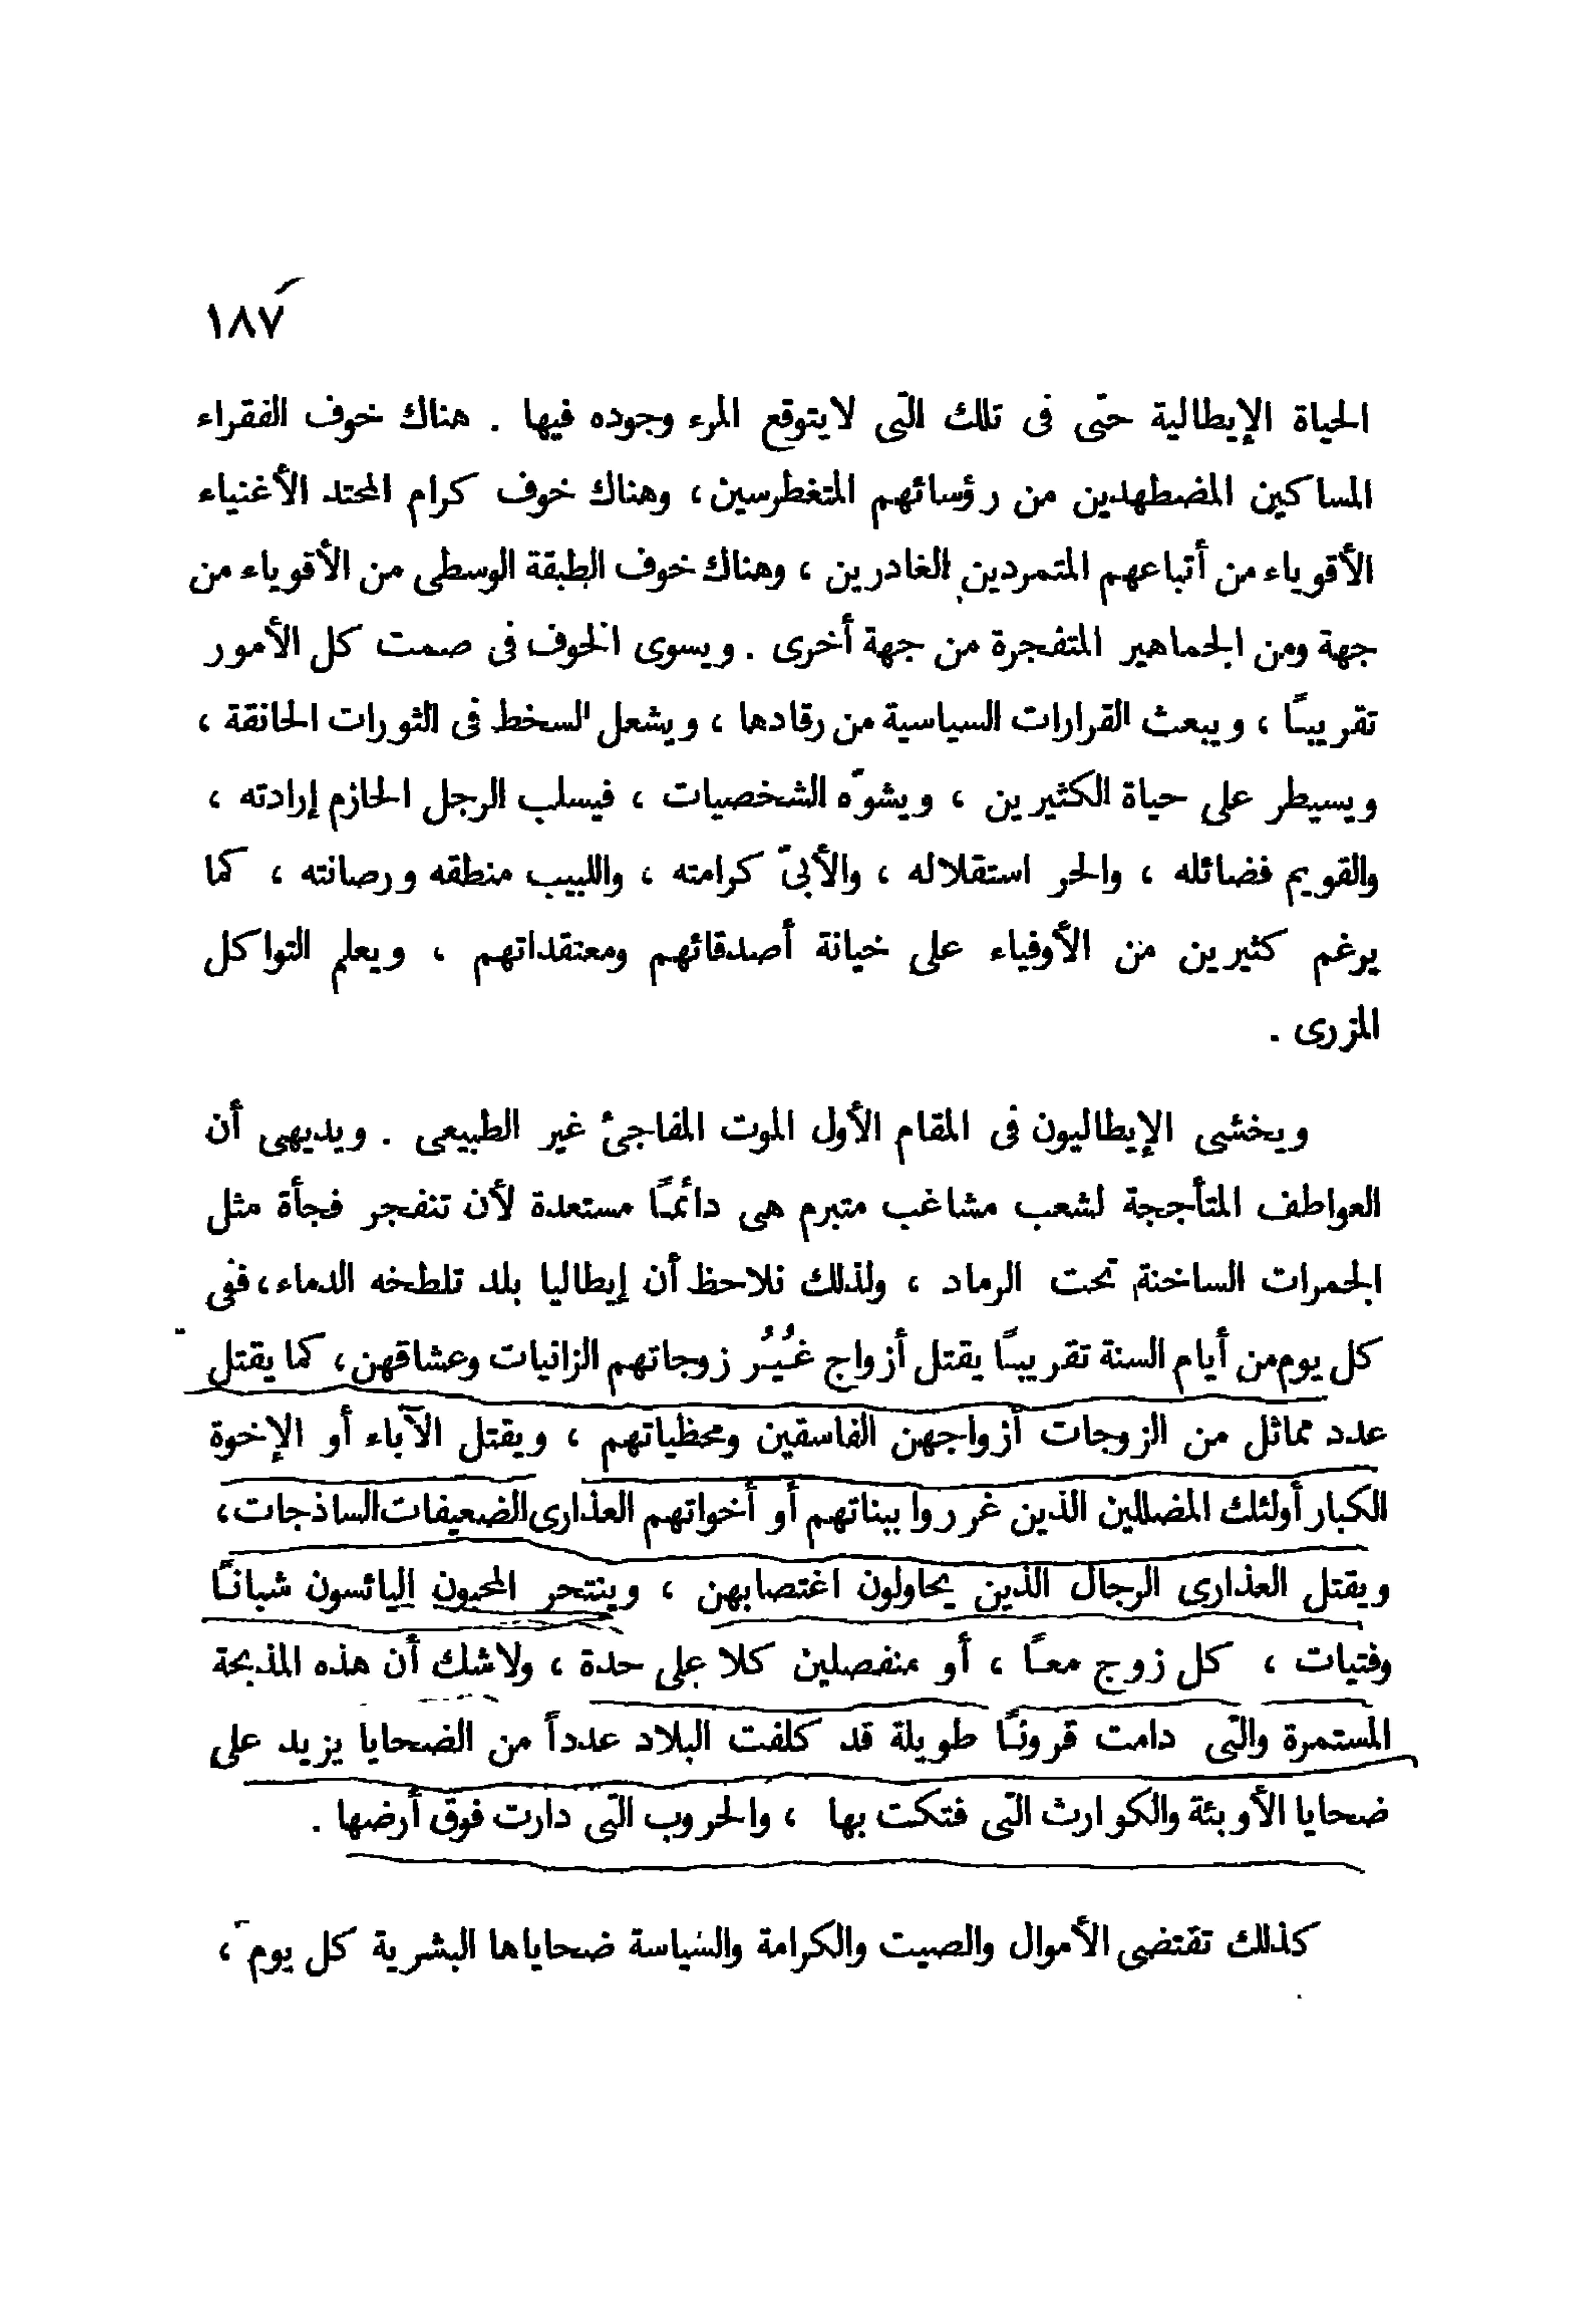 ١٨٧
الحياة الإيطالية حتى فى تلك التى لايتوقع المرء وجوده فيها . هناك خوف الفقراء
المساكين المضطهدين من رؤسائهم المتغطرسين ، وهناك خوف كرام المحتد الأغنياء
الأقوياء من أتباعهم المتمردين الغادرين ، وهناك خوف الطبقة الوسطى من الأقوياء من
جهة ومن الجماهير المتفجرة من جهة أخرى . ويسوى الخوف فى صمت كل الأمور
تقريبًا ، ويبعث القرارات السياسية من رقادها ، ويشعل السخط فى الثورات الحانقة ،
ويسيطر على حياة الكثيرين ، ويشوّه الشخصيات ، فيسلب الرجل الحازم إرادته ،
والقويم فضائله ، والحر استقلاله ، والأبىّ كرامته ، واللبيب منطقه ورصانته ، كما
يرغم كثيرين من الأوفياء على خيانة أصدقائهم ومعتقداتهم ، ويعلم التواكل
المزرى .
ويخشى الإيطاليون فى المقام الأول الموت المفاجئ غير الطبيعى . وبديهى أن
العواطف المتأججة لشعب مشاغب متبرم هى دائمًا مستعدة لأن تنفجر فجأة مثل
الجمرات الساخنة تحت الرماد ، ولذلك نلاحظ أن إيطاليا بلد تلطخه الدماء ، ففى
كل يوم من أيام السنة تقريبًا يقتل أزواج غُيُر زوجاتهم الزانيات وعشاقهن ، كما يقتل
عدد مماثل من الزوجات أزواجهن الفاسقين ومحظياتهم ، ويقتل الآباء أو الإخوة
الكبار أولئك المضللين الذين غرروا ببناتهم أو أخواتهم العذارى الضعيفات الساذجات ،
ويقتل العذارى الرجال الذين يحاولون اغتصابهن ، وينتحر المحبون اليائسون شبانًا
وفتيات ، كل زوج معًا ، أو منفصلين كلا على حدة ، ولاشك أن هذه المذبحة
المستمرة والتى دامت قرونًا طويلة قد كلفت البلاد عدداً من الضحايا يزيد على
ضحايا الأوبئة والكوارث التى فتكت بها ، والحروب التى دارت فوق أرضها .
كذلك تقتضى الأموال والصيت والكرامة والسياسة ضحاياها البشرية كل يوم ،